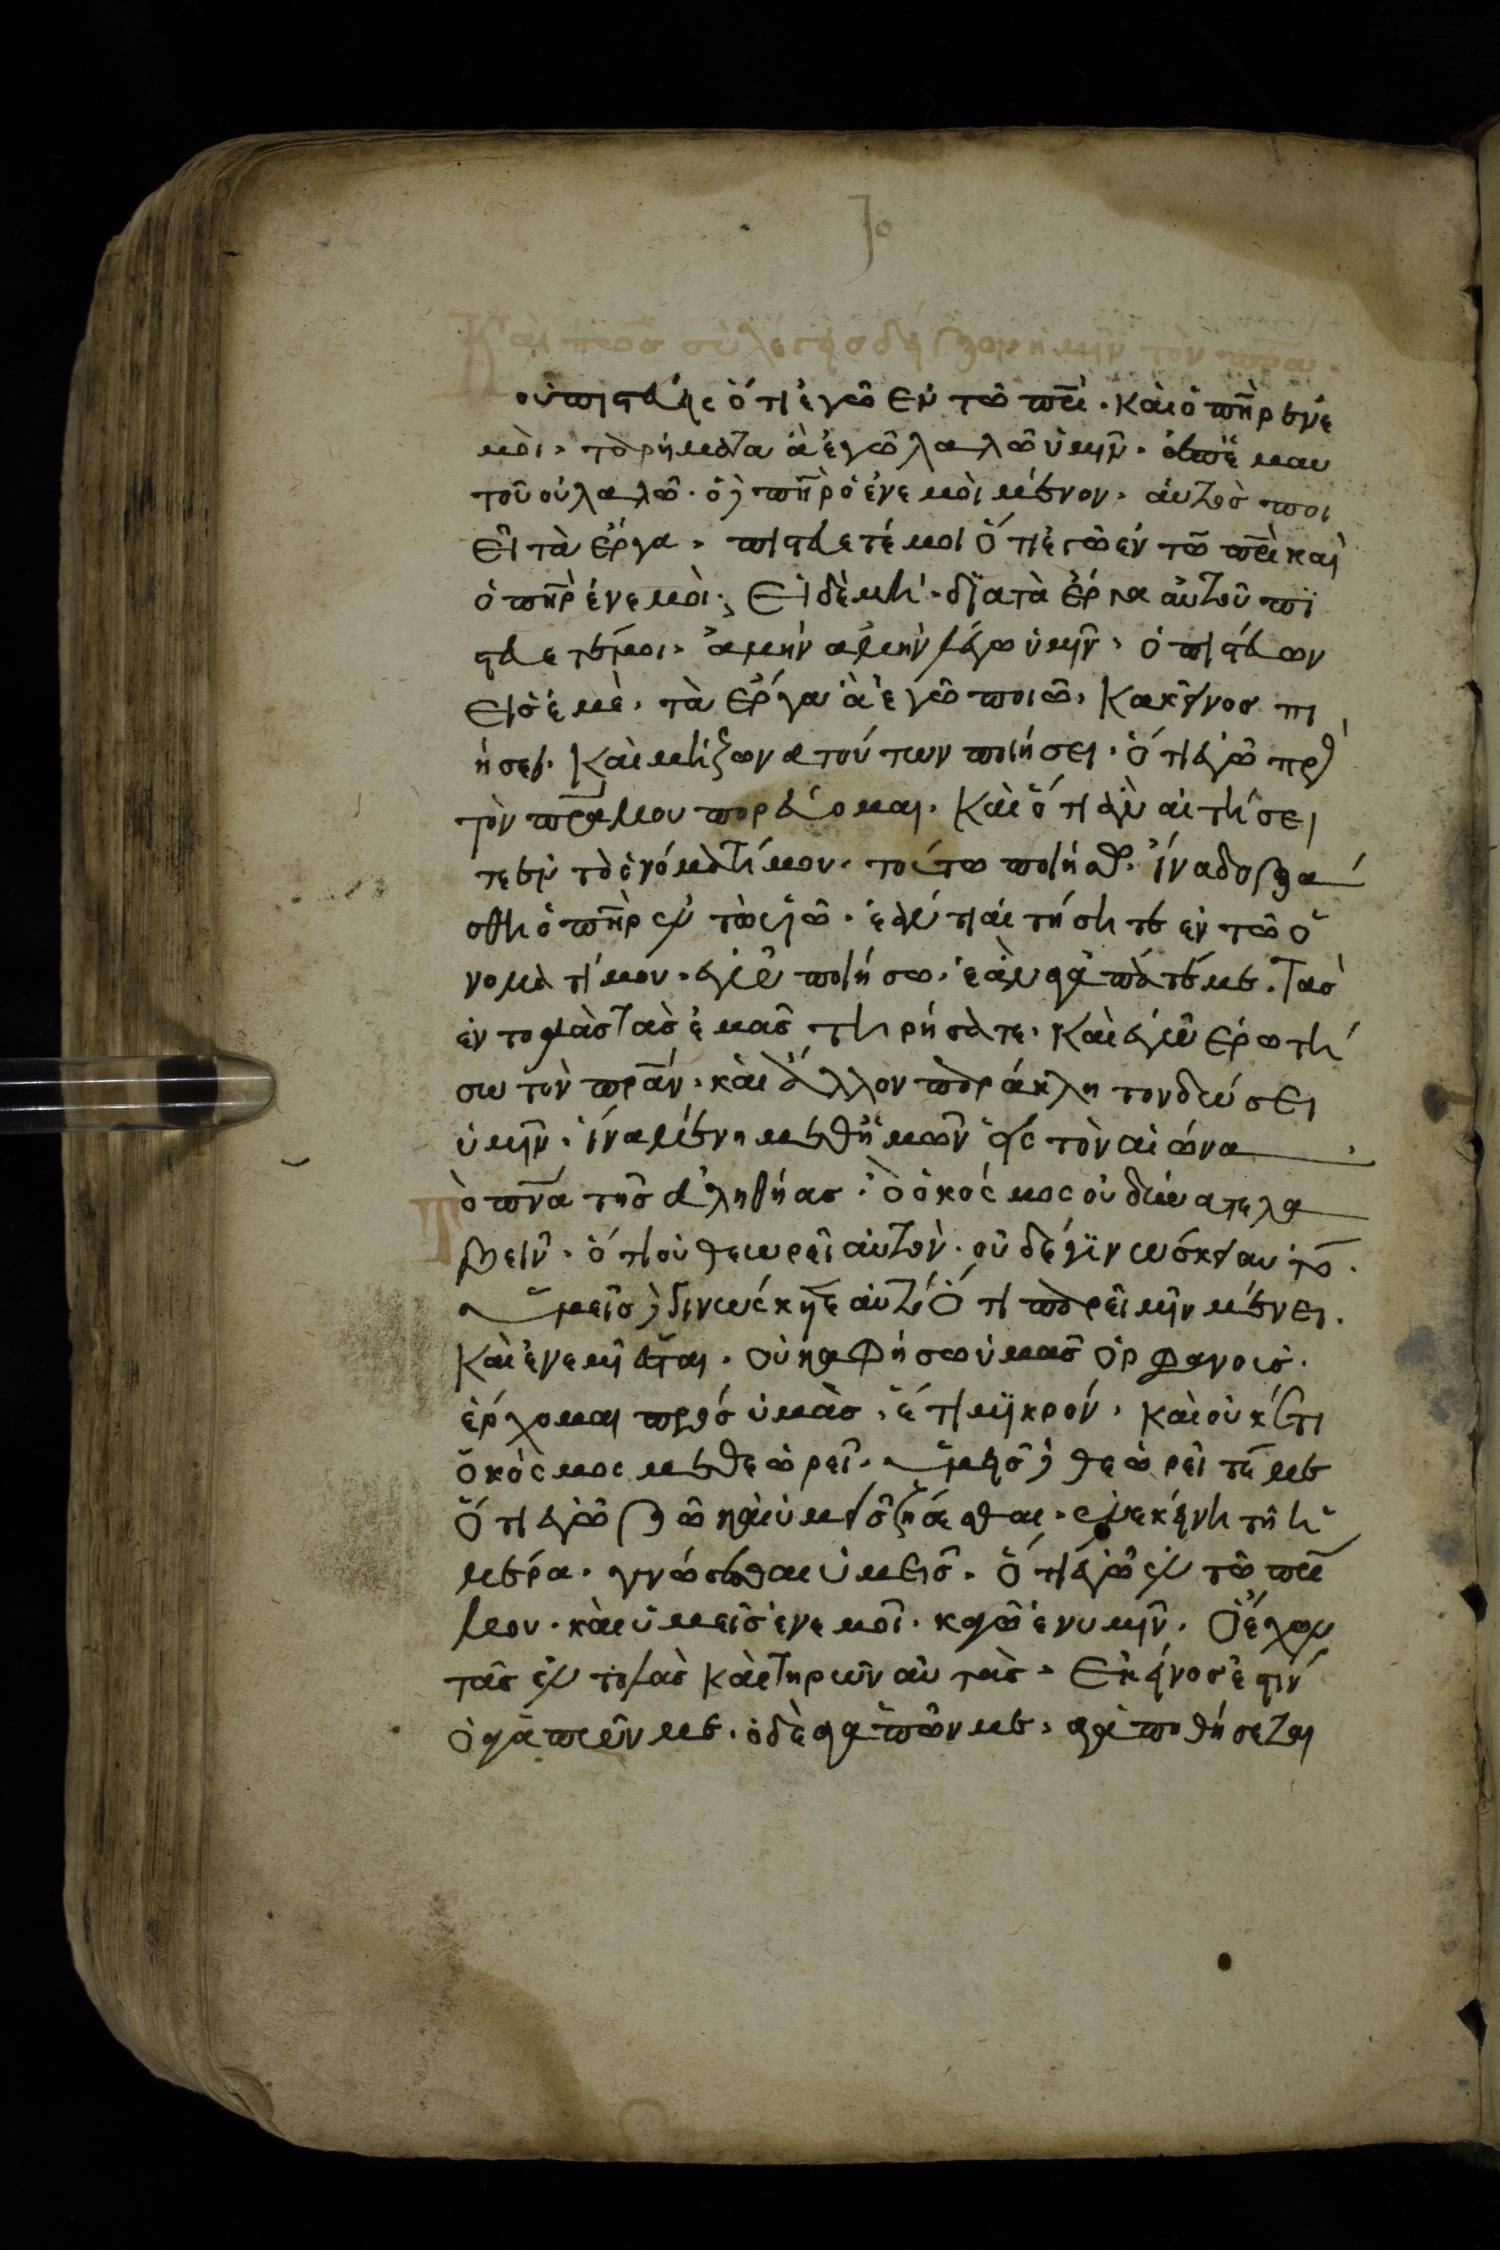 Καὶ πῶσ σὺ λέγησ δήξον ἡμῖν τὸν πρα.
οὐ πιστεύης ὅτι ἐγῶ ἐν τῶ πρι. καὶ ὁ πηρ ἐνε
μοὶ. τὰ ρήματα ἃ ἐγῶ λαλῶ ὑμῖν. ἀπ ἐμαυ
τοῦ οὐ λαλῶ. ὁ δὲ πηρ ὁ ἐν ἐμοὶ μένον. αὐτὸσ ποι
εῖ τὰ ἔργα. πιστευετέ μοι ὅτι ἐγῶ ἐν τῶ πρι καὶ
ὁ πηρ ἐν εμοὶ. Εἰ δὲ μὴ. δϊα τὰ ἔργα αὐτοῦ πϊ
στευετέ μοι. ἀμὴν ἀμὴν λέγω ὑμῖν. ὁ πιστεύων
εἰσ ἐμὲ. τὰ ἔργα ἃ ἐγῶ ποιῶ. κακῆνοσ πι
ήσει. Καὶ μείζωνα τούτων ποιήσει. ὅτι ἐγῶ πρὸ
τὸν πρα μου πορεύομαι. Καὶ ὅτι ἂν αἰτήσει
τε ἐν τὸ ὀνόματί μου. τούτω ποιήσω. ἵνα δοξα
σθῆ ὁ πηρ ἐν τῶ υἱῶ. ἐάν τι αἰτήσητε ἐν τῶ ὀ
νοματί μου. ἐγῶ ποιήσω. ἐὰν ἀγαπάτέ με. Τασ
ἐντολὰσ τὰσ ἐμασ τηρήσατε. Καὶ ἐγῶ ἐρωτή
σω τὸν πραν. καὶ ἄλλον παράκλητον δώσει
ὑμῖν. ἵνα μένη μεθ ἡμῶν εἰς τὸν αἰώνα
Τὸ πνα τῆσ ἀληθήασ. ὃ ὁ κόσμος οὐ δύναται λα
βεῖν. ὅτι οὐ θεωρεῖ αὐτὸν. οὐδὲ γϊνώσκει αυτὸ.
ὑμεῖσ δὲ γινώσκητε αὐτό ὅτι παρ εἱμῖν μένει.
Καὶ ἐν ἐμῖ ἔσται. Οὐκ ἀφήσω ὑμασ ὀρφανουσ.
ἐρχομαι πρὸσ ὑμὰσ. ἔτι μϊκρόν. καὶ οὐκέτι
ὁ κόσμος με θεωρεῖ. ὑμεῖσ δὲ θεωρεῖτέ με
ὅτι ἐγῶ ζῶ καὶ ὑμεῖσ ζήσεσθαι. ἐν ἐκήνη τῆ ἡ
μέρα. γνώσεσθαι ὑμεῖσ. ὅτι ἐγῶ ἐν τῶ πρι
μου. καὶ ὑμεῖσ ἐν εμοῖ. καγῶ ἐν υμῖν. Ὁ ἔχων
τὰσ ἐντολὰσ καὶ τηρῶν αὐτὰσ. Εκῆνοσ ἐστιν
ὁ ἀγαπῶν με. ὁ δὲ ἀγαπῶν με. ἀγαποθήσεται